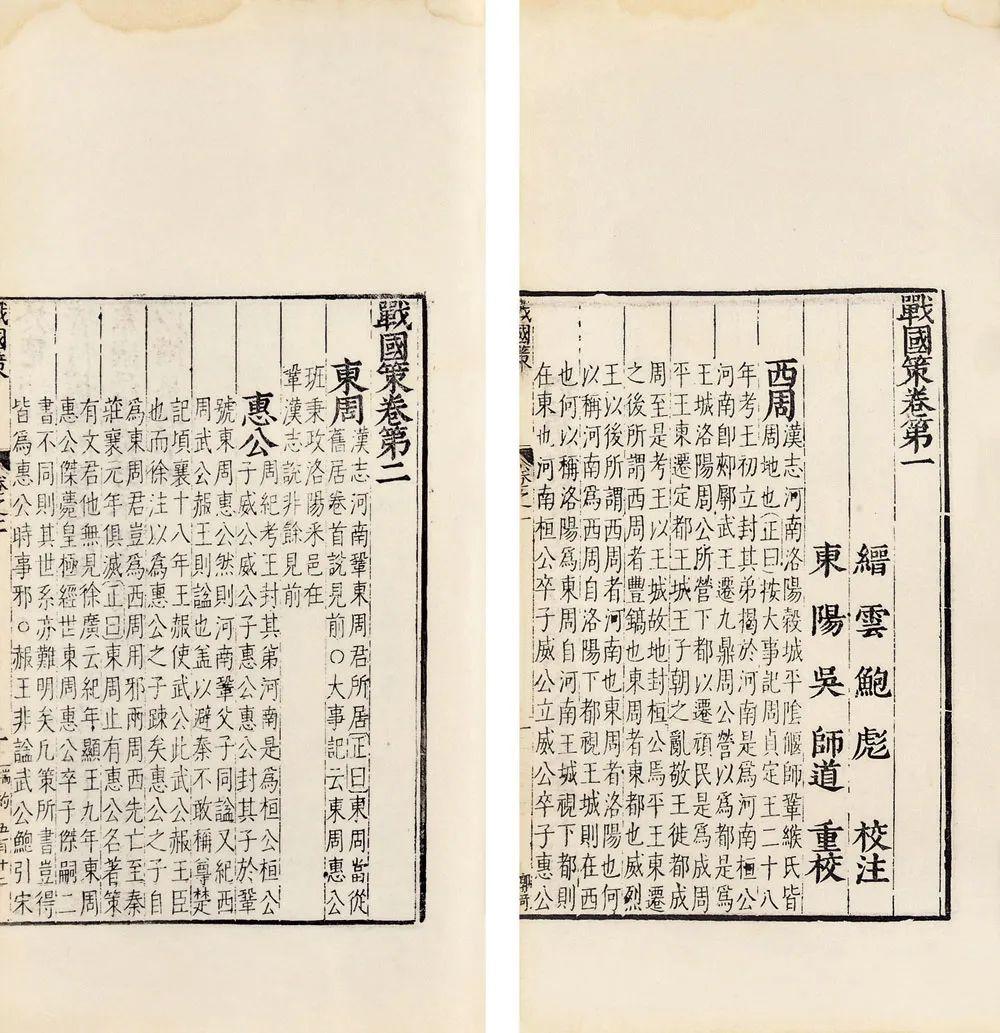 戰國策卷第一
縉雲鮑彪 校注
東陽吳師道 重校
西周 漢志河南洛陽榖城平隂偃師鞏緱氏皆
周地也正曰按大事記周貞定王二十八
年考王初立封其弟揭於河南是爲河南桓公
河南即郟鄏武王遷九鼎周公營以爲都是爲
王城洛陽周公所營下都以遷頑民是爲成周
平王東遷定都王城王子朝之亂敬王徙都成
周至是考王以王城故地封桓公焉平王東遷
之後所謂西周者豐鎬也東周者東都也威烈
王以後所謂西周者河南也東周者洛陽也何
以稱河南爲西周自洛陽下都視王城則在西
也何以稱洛陽爲東周自河南王城視下都則
在東也河南桓公卒子威公立威公卒子惠公
戰國策
戰國策卷第二
東周 漢志河南鞏東周君所居正曰東周
舊居卷首說見前○大事記云東周惠公
班秉攻洛陽采邑在
鞏漢志說非餘見前
惠公 周紀考王封其第河南是爲桓公桓公
子威公威公子惠公惠公封其子於鞏
號東周惠公然則河南鞏父子同謚又紀西
周武公赧王則謚也盖以避秦不敢稱尊楚
記頃襄十八年王赧使武公此武公赧王臣
也而徐注以爲惠公之子踈矣惠公之子自
爲東周君豈爲西周用邪兩周西先亡至秦
莊襄元年俱滅正曰東周止有惠公名著策
有文君他無見徐廣云紀年顯王九年東周
惠公傑薨皇極經世東周惠公卒子傑嗣二
書不同則其世系亦難明矣几策所書豈得
皆爲惠公時事邪○赧王非謚武公鮑引宋
戰國策